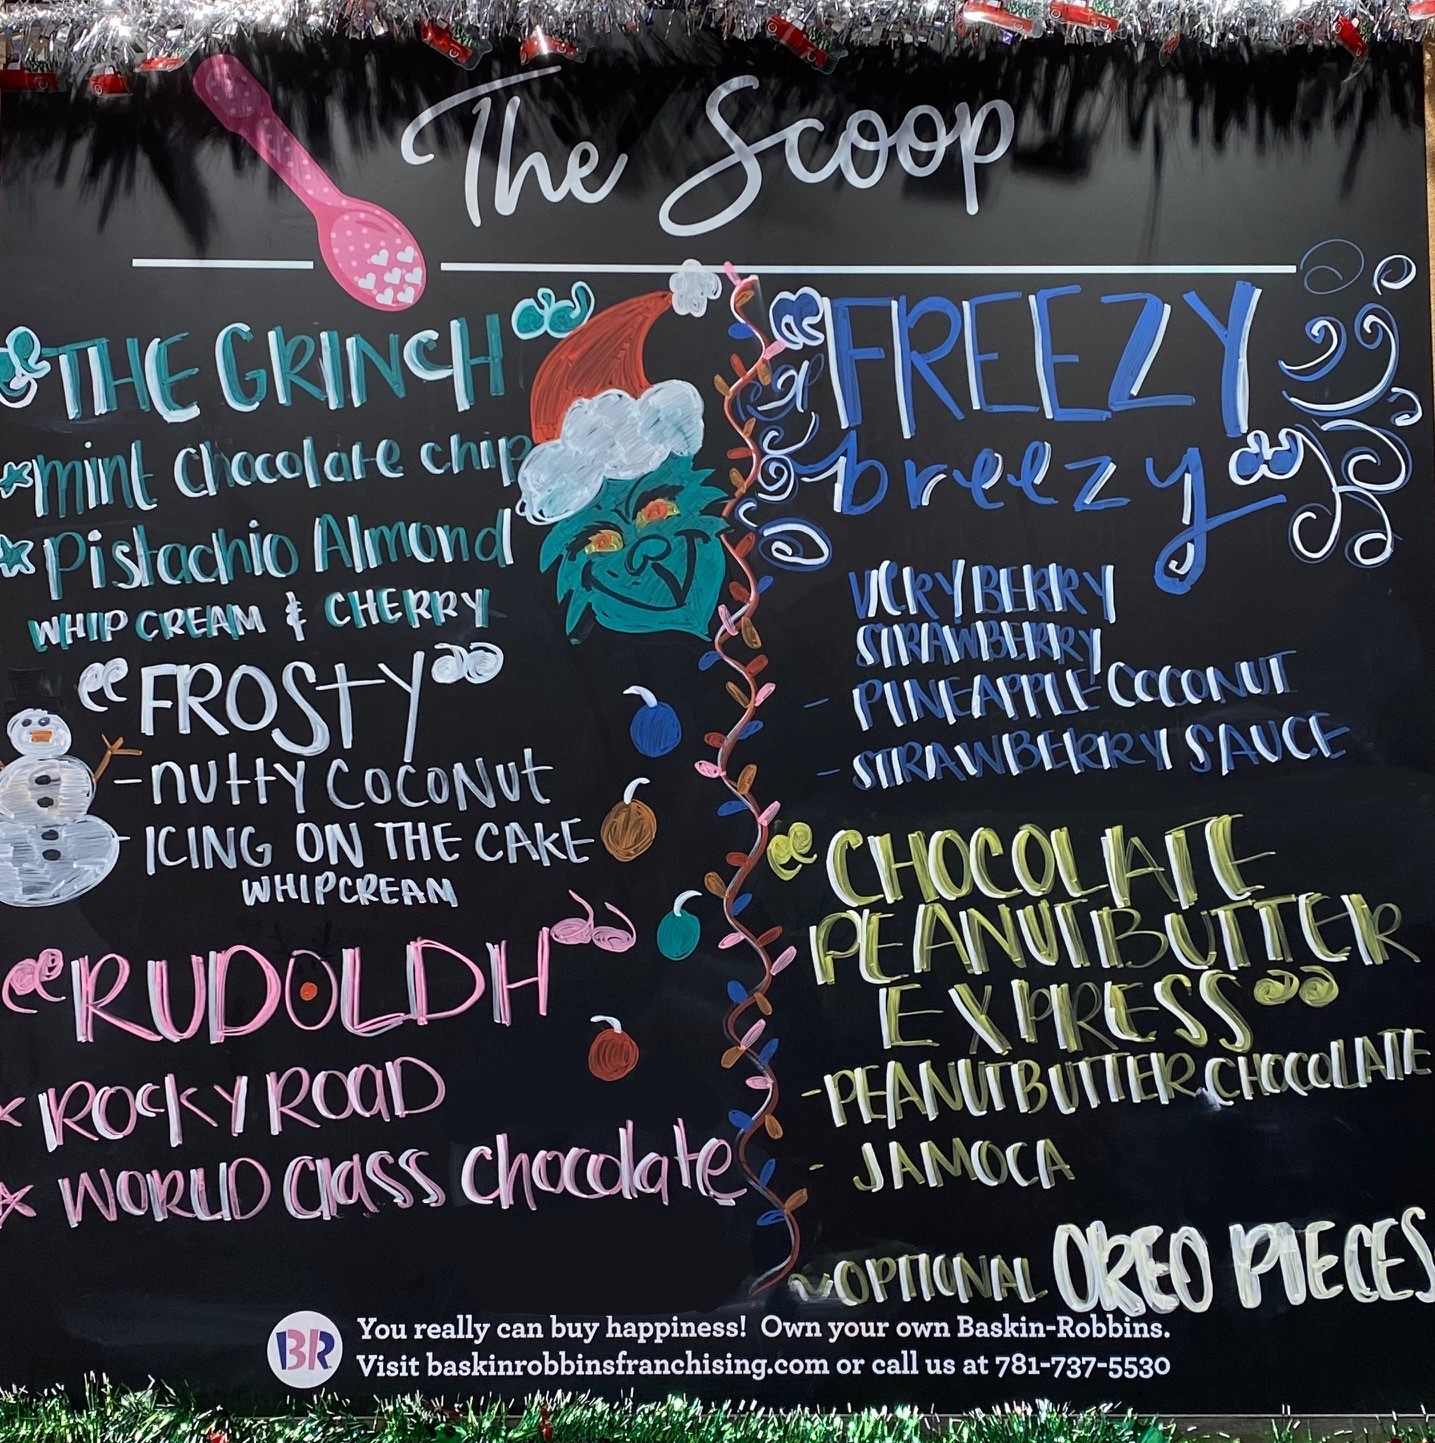 The Scoop
"THE GRINCH"
mint chocolate chip
Pistachio Almond
WHIP CREAM & CHERRY
"FROSTY"
- nutty COCONUT
- ICING ON THE CAKE
WHIPCREAM
"RUDOLDH"
ROCKY ROAD
WORLD Class chocolate
"FREEZY
breezy"
VERY BERRY
STRAWBERRY
- PINEAPPLE COCONUT
- STRAWBERRY SAUCE
"CHOCOLATE
PEANUTBUTTER
EXPRESS"
- PEANUTBUTTER CHOCOLATE
- JAMOCA
~OPTIONAL OREO PIECES
BR
You really can buy happiness! Own your own Baskin-Robbins.
Visit baskinrobbinsfranchising.com or call us at 781-737-5530